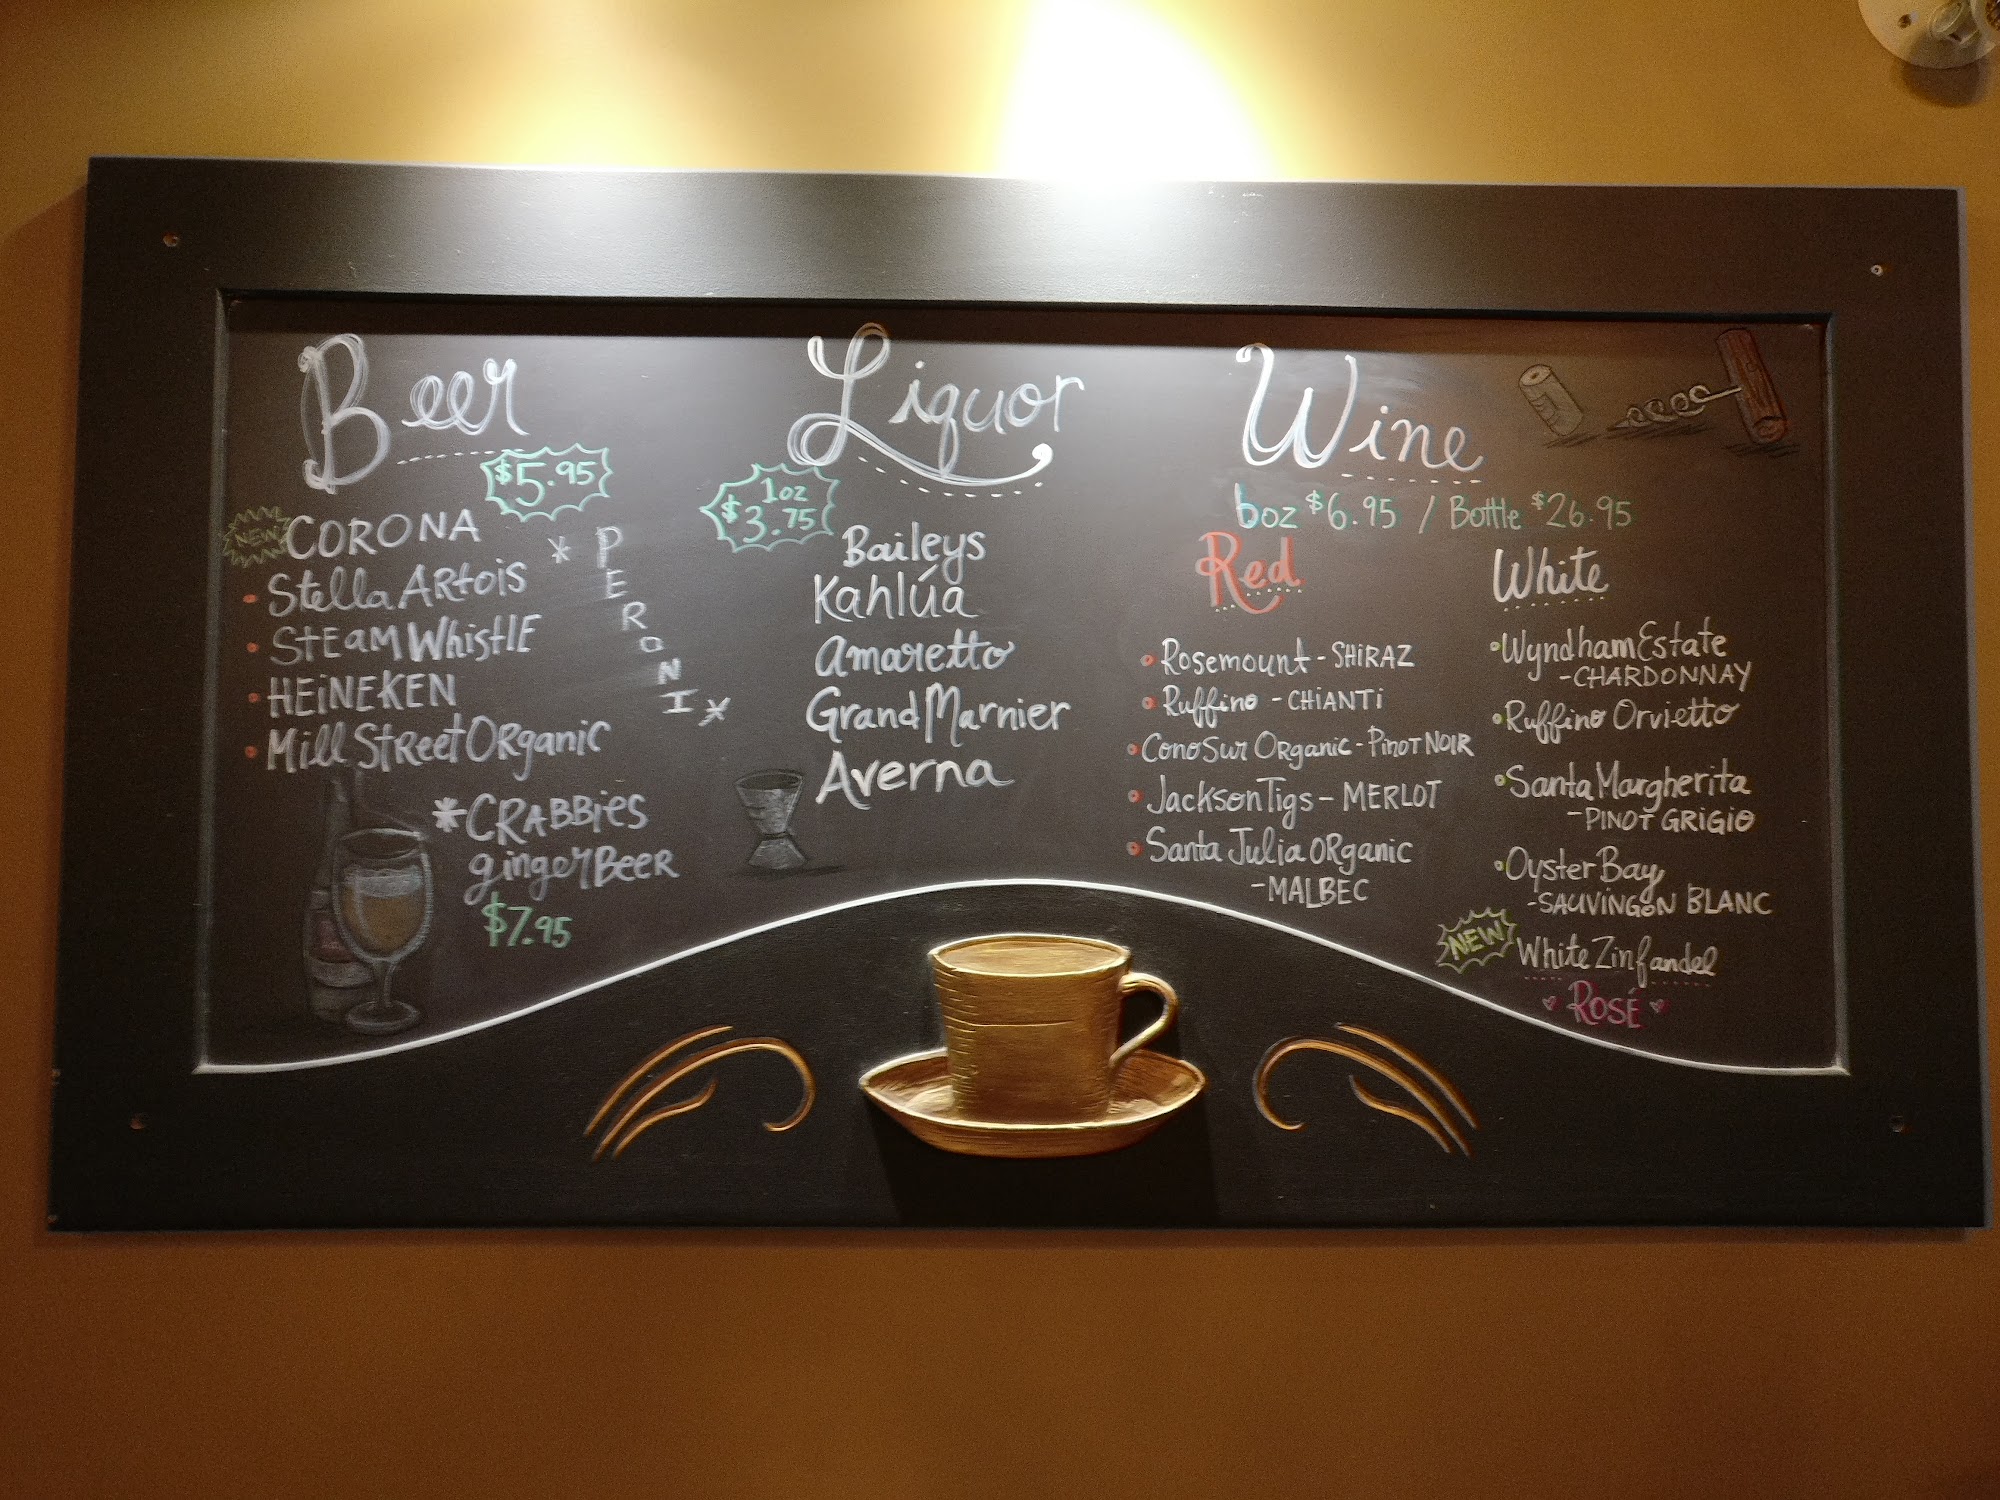 Beer
$5.95
NEW CORONA
Stella Artois
Steam Whistle
HEINEKEN
Mill Street Organic
* PERONI *
*CRABBiES
ginger Beer
$7.95
Liquor
1oz
$3.75
Baileys
Kahlúa
Amaretto
Grand Marnier
Averna
Wine
6oz $6.95 / Bottle $26.95
Red
Rosemount - SHiRAZ
Ruffino - CHiANTi
Cono Sur Organic - Pinot NOIR
Jackson Tigs - MERLOT
Santa Julia Organic
- MALBEC
White
Wyndham Estate
- CHARDONNAY
Ruffino Orvietto
Santa Margherita
- PINOT GRiGiO
Oyster Bay
- SAUVINGON BLANC
NEW White Zinfandel
ROSÉ